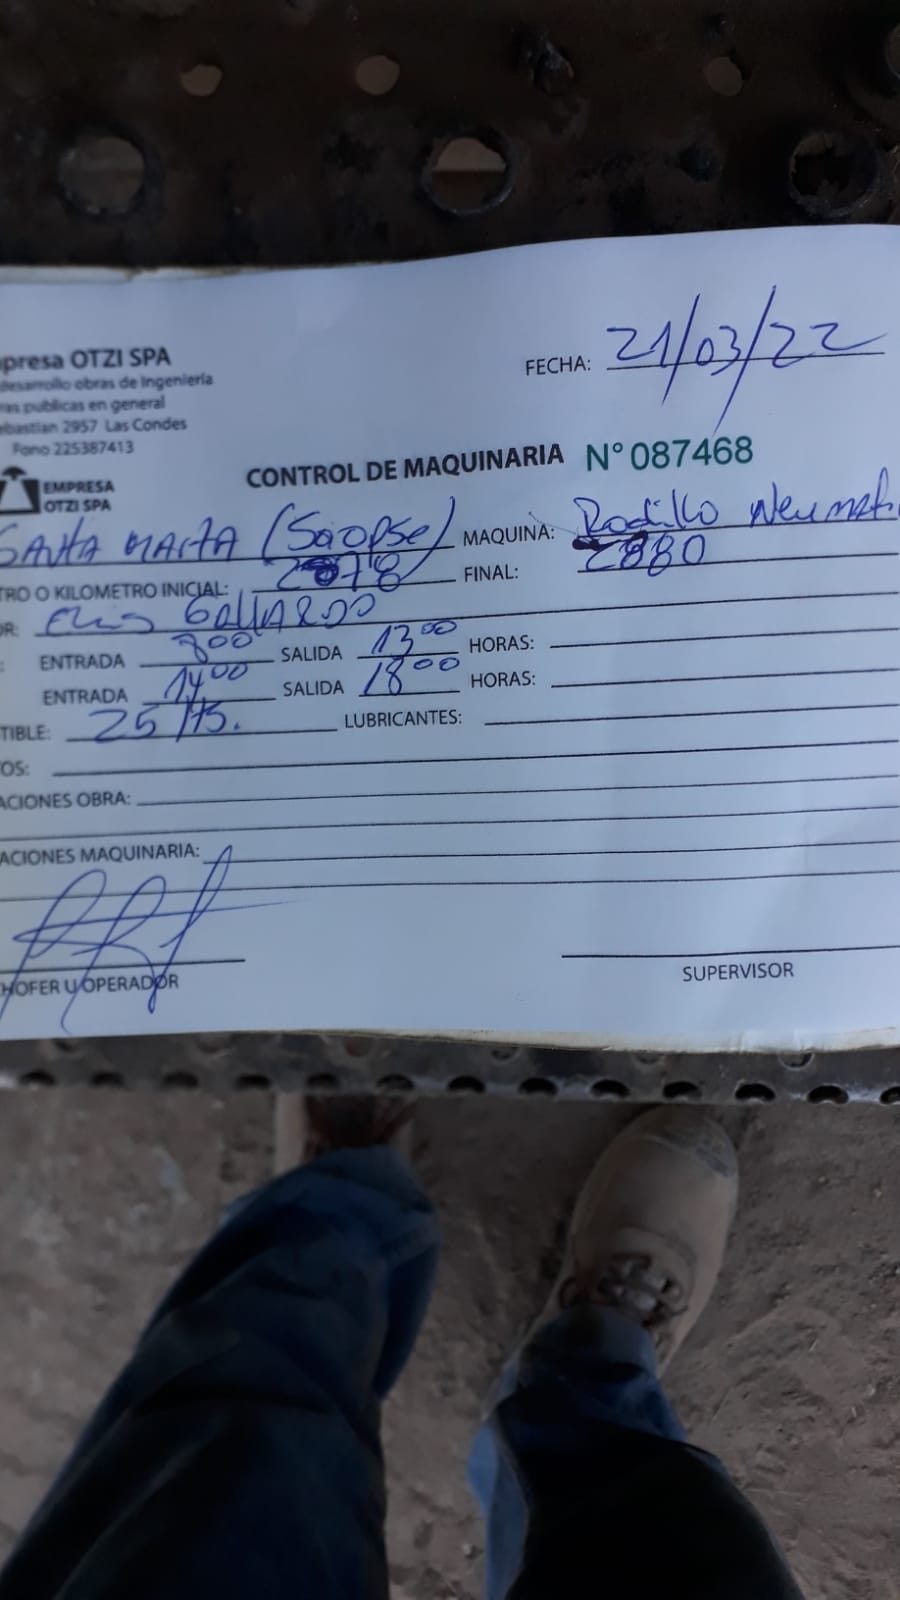 presa OTZI SPA
desarrollo obras de Ingeniería
ras publicas en general
ebastian 2957 Las Condes
Fono 225387413
EMPRESA
OTZI SPA
FECHA: 21/03/22
CONTROL DE MAQUINARIA N° 087468
SANTA MARTA MAQUINA: Rodillo Neumati
TRO O KILOMETRO INICIAL: 2878 FINAL: 2880
OR: GALLARDO
: ENTRADA 800 SALIDA 1300 HORAS:
ENTRADA 1400 SALIDA 1800 HORAS:
TIBLE: 25 LUBRICANTES:
OS:
ACIONES OBRA:
ACIONES MAQUINARIA:
HOFER U OPERADOR
SUPERVISOR